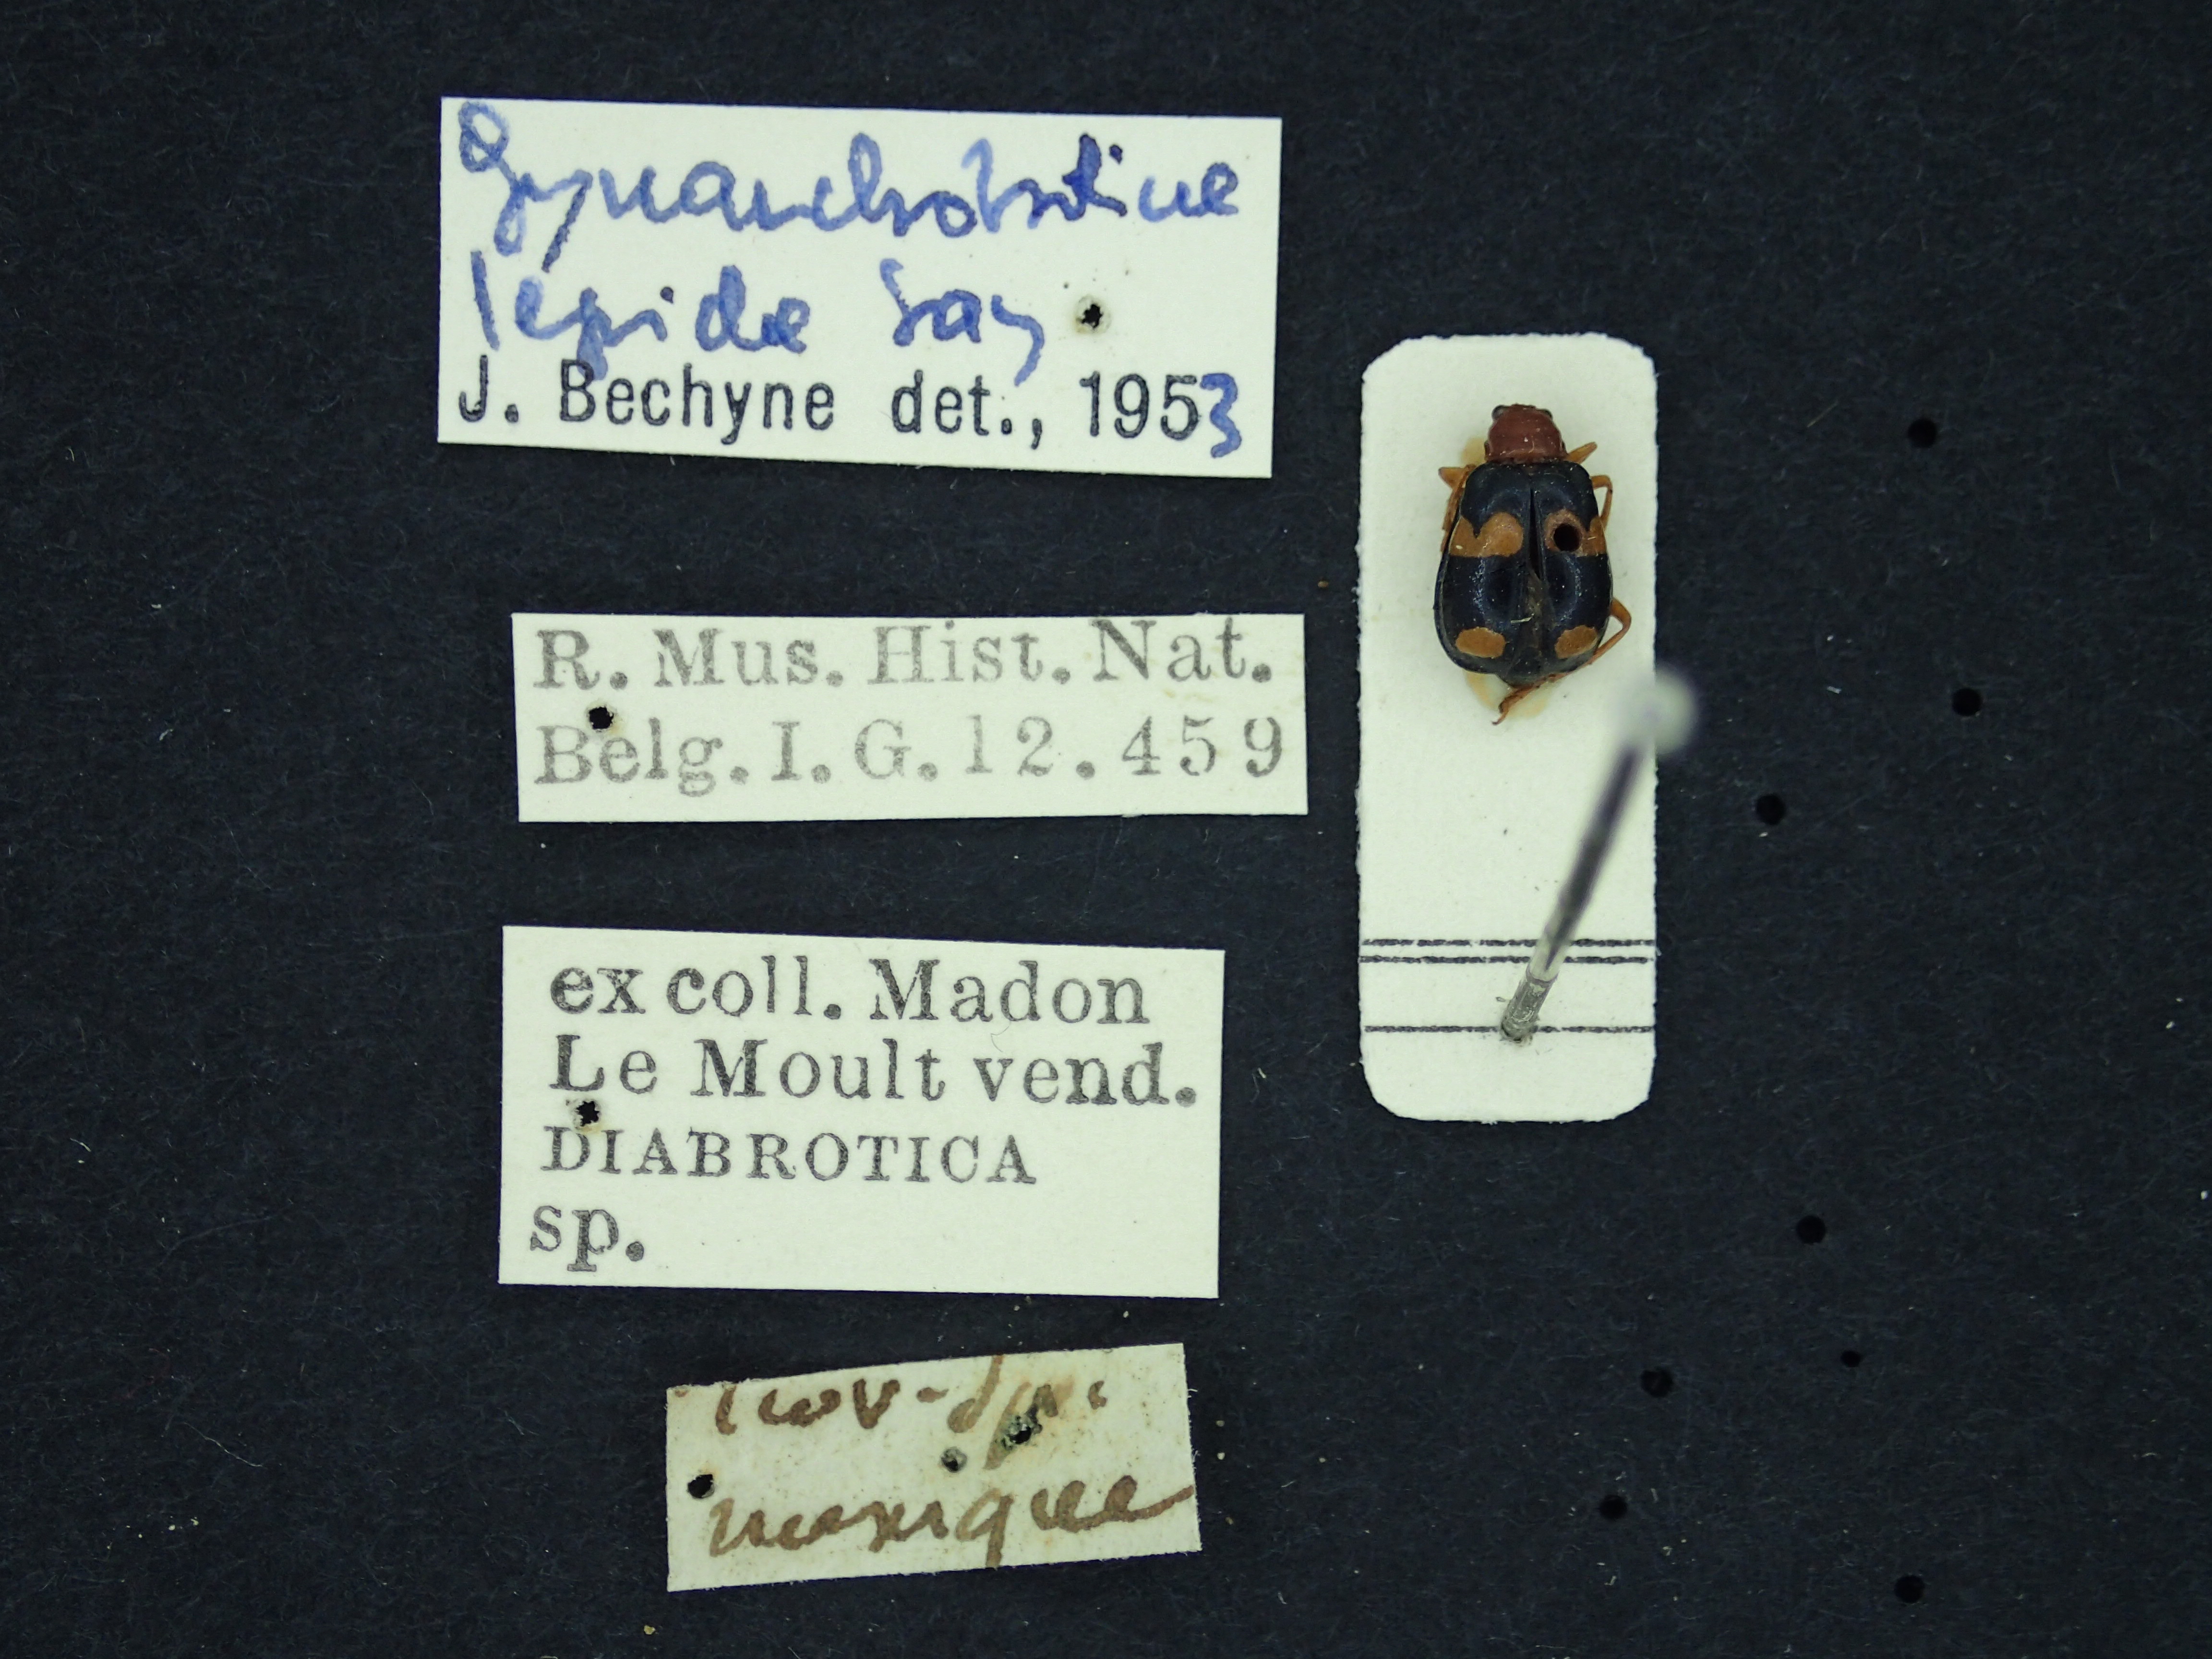 Gynandrobrotica
lepida Say
J. Bechyne det., 1953
R. Mus. Hist. Nat.
Belg. I. G. 12.459
ex coll. Madon
Le Moult vend.
DIABROTICA
sp.
nov-sp.
mexique